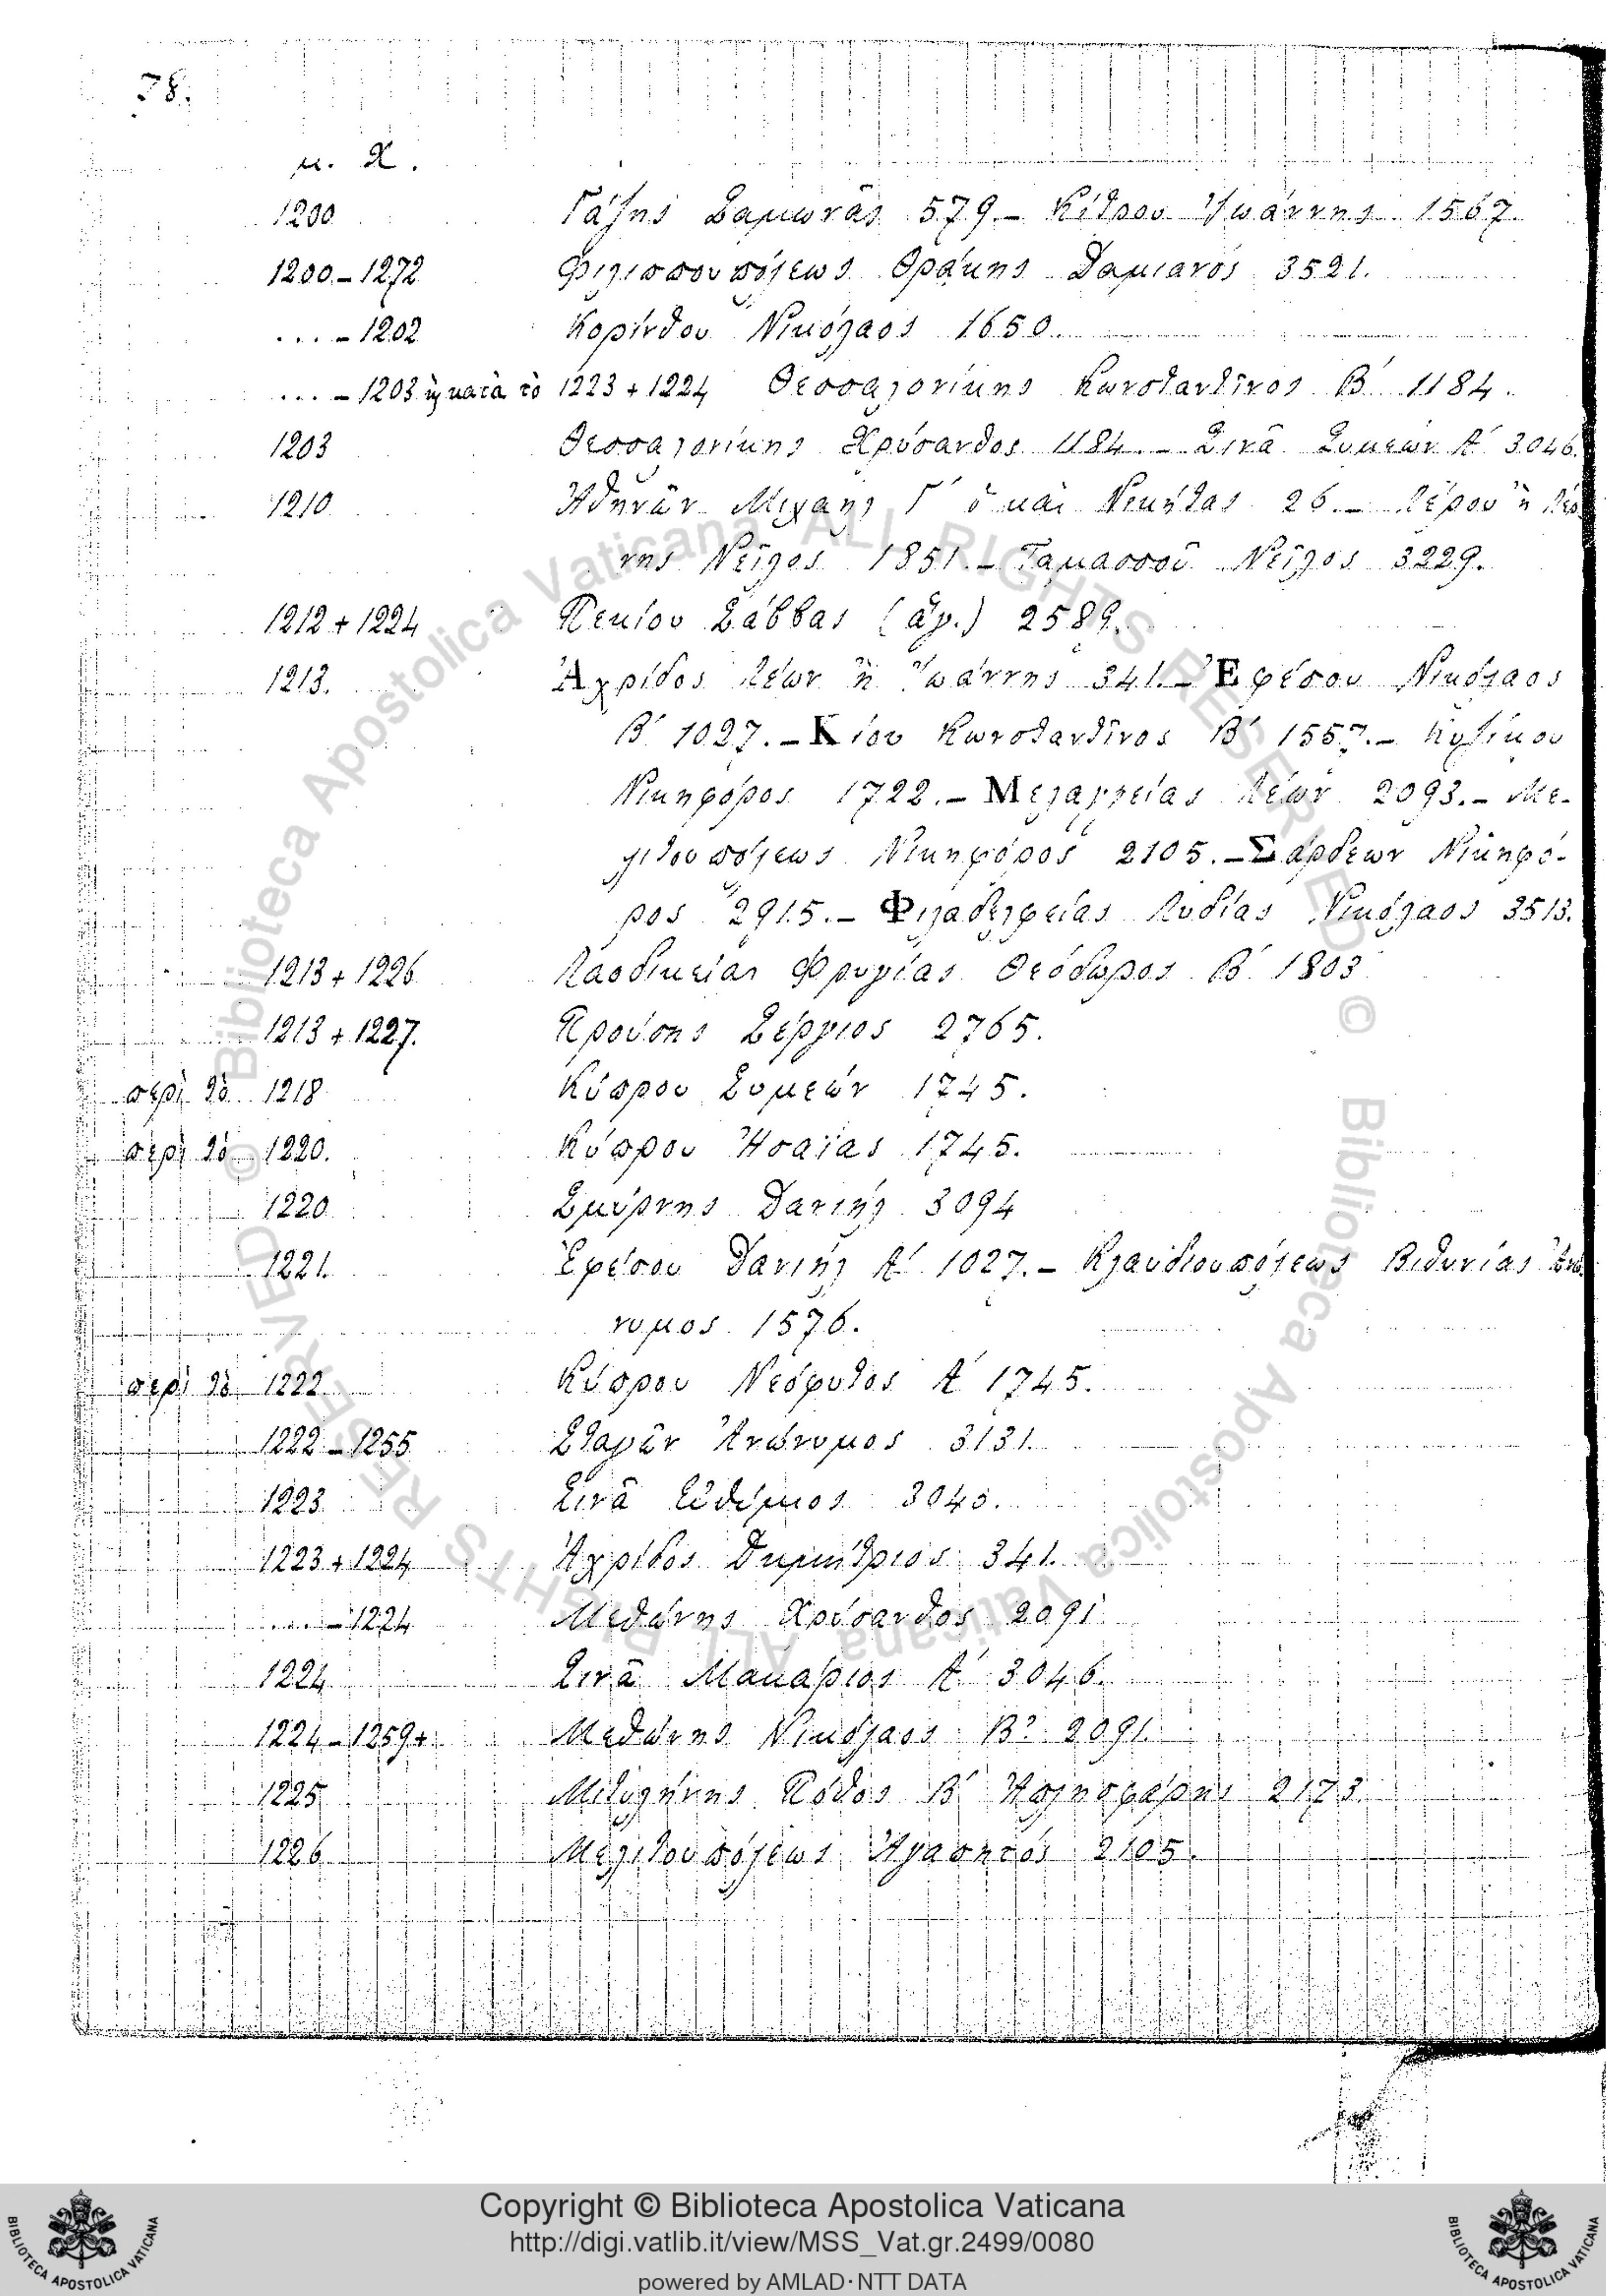 78.
μ. Χ.
1200 Γάζης Σαμωνᾶς 579.– Κίτρου Ἰωάννης 1567.
1200–1272 Φιλιππουπόλεως Θράκης Δαμιανός 3521.
....–1202 Κορίνθου Νικόλαος 1650.
....–1203 ἢ κατὰ τὸ 1223+1224 Θεσσαλονίκης Κωνσταντῖνος Β΄ 1184.
1203 Θεσσαλονίκης Χρύσανθος 1184.– Σινᾶ Συμεὼν Α΄ 3046.
1210 Ἀθηνῶν Μιχαὴλ Γ΄ ὁ καὶ Νικήτας 26.– Λέρου ἢ Λέρ
νης Νεῖλος 1851.– Ταμασσοῦ Νεῖλος 3229.
1212+1224 Πεκίου Σάββας (ἅγ.) 2589.
1213. Ἀχρίδος Λέων ἢ Ἰωάννης 341.– Ἐφέσου Νικόλαος
Β΄ 1027.– Κίου Κωνσταντῖνος Β΄ 1557.– Κυζίκου
Νικηφόρος 1722.– Μελαγγείας Λέων 2093.– Με-
λιτουπόλεως Νικηφόρος 2105.– Σάρδεων Νικηφό-
ρος 2915.– Φιλαδελφείας Λυδίας Νικόλαος 3513.
1213+1226 Λαοδικείας Φρυγίας Θεόδωρος Β΄ 1803
1213+1227. Προύσης Σέργιος 2765.
περὶ τὸ 1218 Κύπρου Συμεών 1745.
περὶ τὸ 1220. Κύπρου Ἡσαΐας 1745.
1220 Σμύρνης Δανιήλ 3094
1221. Ἐφέσου Δανιήλ Α΄ 1027.– Κλαυδιουπόλεως Βιθυνίας Ἀνώ
νυμος 1576.
περὶ τὸ 1222 Κύπρου Νεόφυτος Α΄ 1745.
1222–1255 Σταγῶν Ἀνώνυμος 3131.
1223 Σινᾶ Εὐθύμιος 3045.
1223+1224 Ἀχρίδος Δημήτριος 341.
....–1224 Μεθώνης Χρύσανθος 2091
1224 Σινᾶ Μακάριος Α΄ 3046.
1224–1259+ Μεθώνης Νικόλαος Β? 2091.
1225 Μιτυλήνης Πόθος Β΄ 2173.
1226 Μελιτουπόλεως Ἀγαπητός 2105.
© Biblioteca Apostolica Vaticana ALL RIGHTS RESERVED
© Biblioteca Apostolica Vaticana ALL RIGHTS RESERVED
Copyright © Biblioteca Apostolica Vaticana
http://digi.vatlib.it/view/MSS_Vat.gr.2499/0080
powered by AMLAD·NTT DATA
BIBLIOTECA APOSTOLICA VATICANA
BIBLIOTECA APOSTOLICA VATICANA